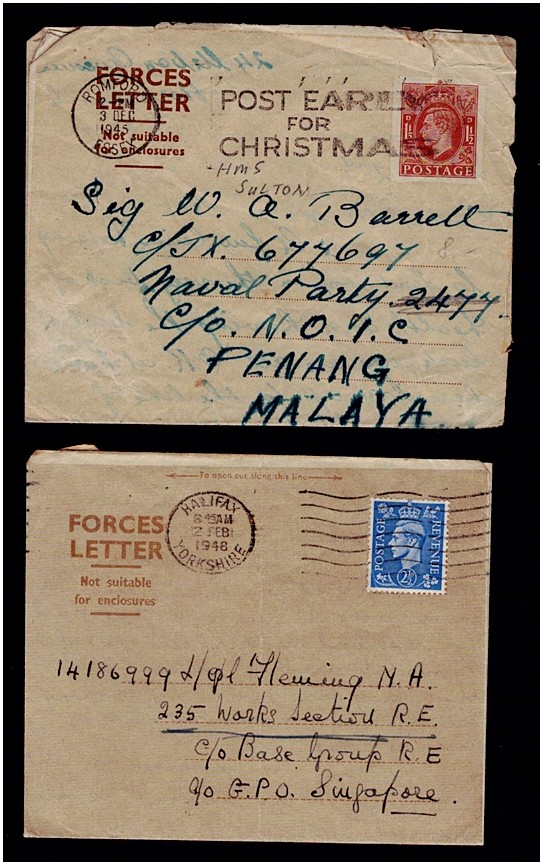 FORCES
LETTER
Not suitable
for enclosures
ROMFORD
2-PM
3 DEC
1945
ESSEX
POST EARLY
FOR
CHRISTMAS
1½D 1½D
POSTAGE
HMS
SULTON
Sig W. A. Barrett
C/JX. 677697
8
Naval Party 2477
C/o. N.O.I.C
PENANG
MALAYA
To open cut along this line
FORCES
LETTER
Not suitable
for enclosures
HALIFAX
8 45AM
2 FEB
1948
YORKSHIRE
POSTAGE
REVENUE
2½
14186999 L/Cpl Fleming N.A.
235 Works Section R.E.
C/o Base Group R.E
c/o G.P.O. Singapore.